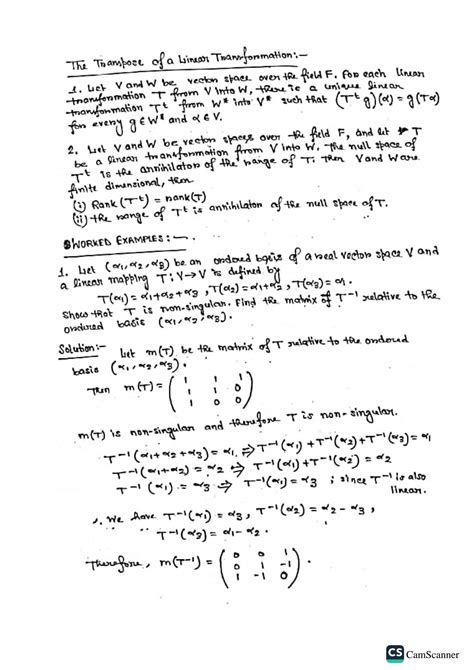 The Transpose of a Linear Transformation:-
1. Let V and W be vector space over the field F. For each linear
transformation T from V into W, there is a unique linear
transformation Tᵗ from W* into V* such that (Tᵗ g)(α) = g(Tα)
for every g∈W* and α∈V.
2. Let V and W be vector spaces over the field F, and let T
be a linear transformation from V into W. The null space of
Tᵗ is the annihilator of the range of T. Then V and W are
finite dimensional, then
(i) Rank(Tᵗ) = rank(T)
(ii) the range of Tᵗ is annihilator of the null space of T.
WORKED EXAMPLES:-
1. Let (α₁, α₂, α₃) be an ordered basis of a real vector space V and
a linear mapping T: V→V is defined by
T(α₁) = α₁+α₂+α₃, T(α₂) = α₁+α₂, T(α₃) = α₁.
Show that T is non-singular. Find the matrix of T⁻¹ relative to the
ordered basis (α₁, α₂, α₃).
Solution:- Let m(T) be the matrix of T relative to the ordered
basis (α₁, α₂, α₃).
Then m(T) = ( 1 1 1
1 1 0
1 0 0 )
m(T) is non-singular and therefore T is non-singular.
T⁻¹(α₁+α₂+α₃) = α₁ ⇒ T⁻¹(α₁) + T⁻¹(α₂) + T⁻¹(α₃) = α₁
T⁻¹(α₁+α₂) = α₂ ⇒ T⁻¹(α₁) + T⁻¹(α₂) = α₂
T⁻¹(α₁) = α₃ ⇒ T⁻¹(α₁) = α₃ ; since T⁻¹ is also
linear.
∴ We have T⁻¹(α₁) = α₃, T⁻¹(α₂) = α₂ - α₃,
T⁻¹(α₃) = α₁ - α₂.
Therefore, m(T⁻¹) = ( 0 0 1
0 1 -1
1 -1 0 ).
CS CamScanner